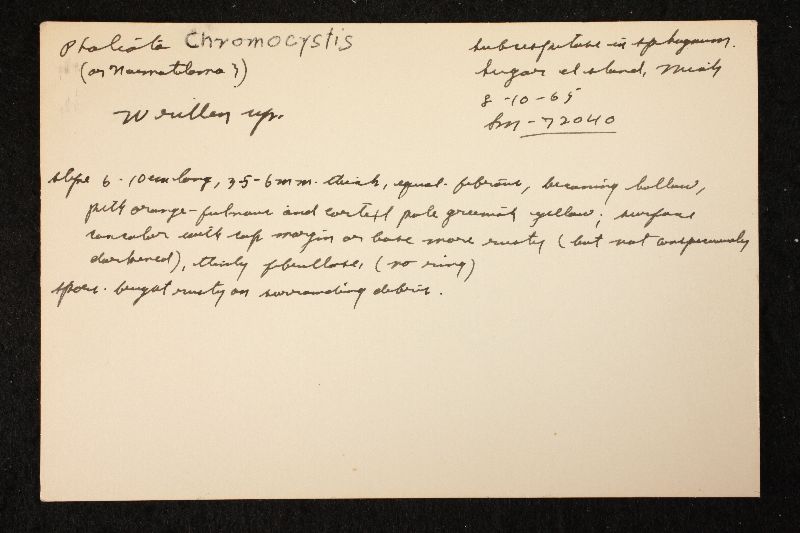 Pholiota Chromocystis
(or Naematoloma?)
Written up.
subcespitose in sphagnum.
Sugar Island, Mich
8-10-65
Sm-72040
stipe 6-10 cm long, 3.5-6 mm. thick, equal. fibrous, becoming hollow,
pith orange-fulvous and cortex pale greenish yellow; surface
concolor with cap margin or base more rusty (but not conspicuously
darkened), thinly fibrillose, (no ring)
spores bright rusty on surrounding debris.